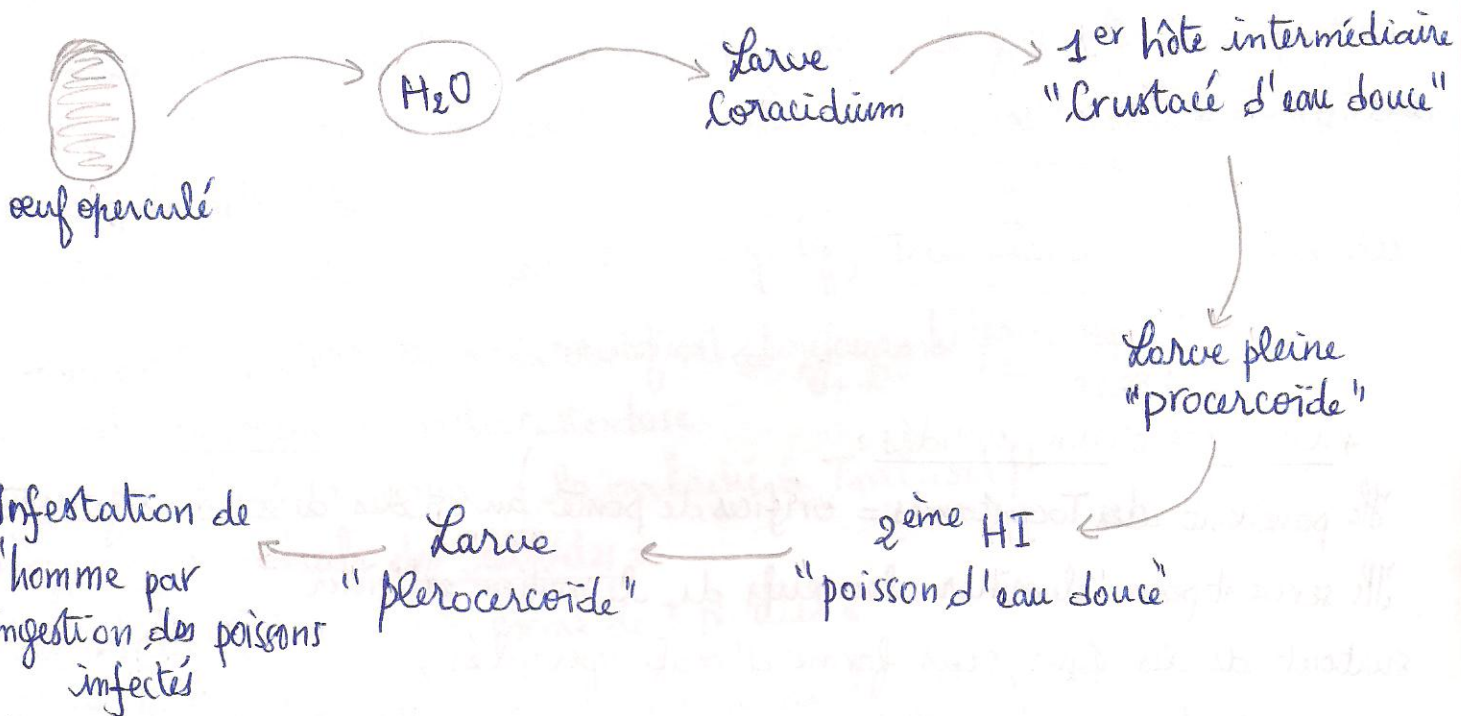 œuf operculé
H₂O
Larve
Coracidium
1er hôte intermédiaire
"Crustacé d'eau douce"
Larve pleine
"procercoïde"
2ème HI
"poisson d'eau douce"
Larve
"plerocercoïde"
Infestation de
l'homme par
ingestion des poissons
infectés